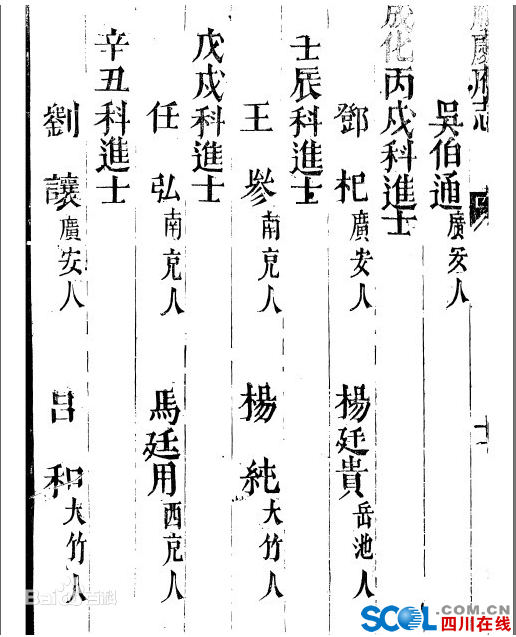 順慶府志
十
吳伯通廣安人
成化丙戌科進士
鄧杞廣安人 楊廷貴岳池人
壬辰科進士
王參南充人 楊純大竹人
戊戌科進士
任弘南充人 馬廷用西充人
辛丑科進士
劉讓廣安人 呂和大竹人
Bai百科
SCOL.COM.CN
四川在线